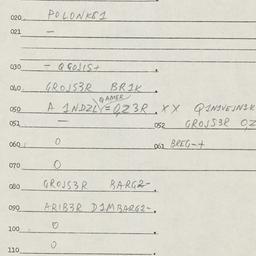 020 POLONKE1
021 —
030 — QGOJ1S+
040 GROJS3R BR1K
GAMER
050 A 1NDZLY=QZ3R XX Q1N1VEJN1K
051 — 052 GROJS3R OZ
060 O 061 BREG-+
070 O
080 GROJS3R BARG2-
090 AR1B3R D1M BARG2-
100 O
110 O